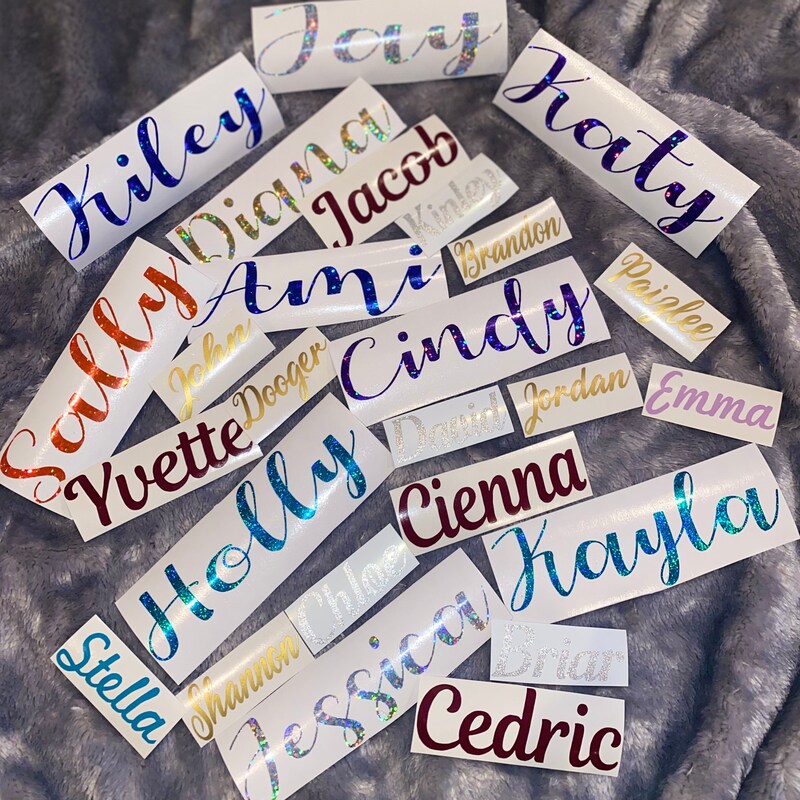 Jay
Kiley
Katy
Diana
Jacob
Kinley
Brandon
Ami
Paizlee
Sally
Cindy
John
Dooger
David
Jordan
Emma
Yvette
Holly
Cienna
Kayla
Chloe
Stella
Shannon
Jessica
Briar
Cedric